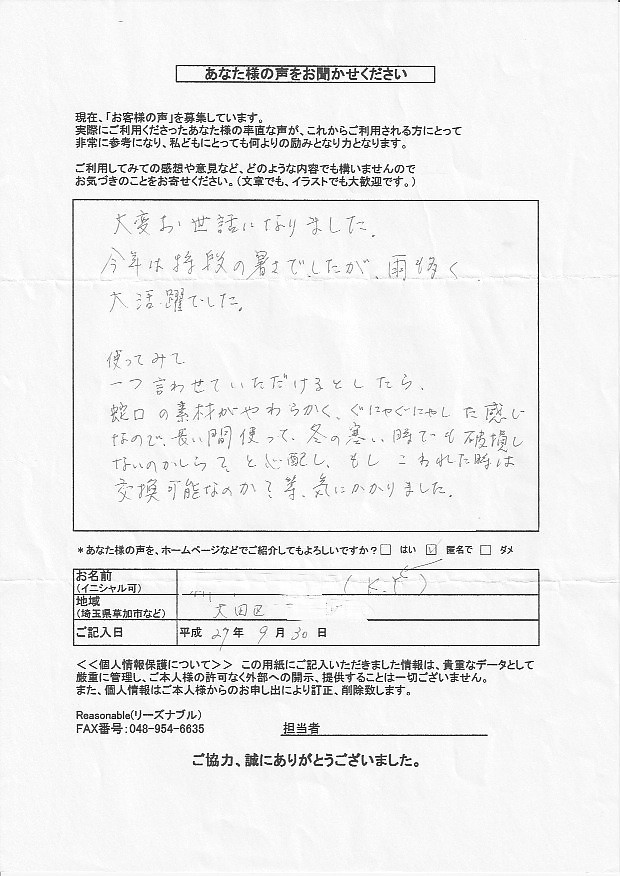 あなた様の声をお聞かせください
現在、「お客様の声」を募集しています。
実際にご利用くださったあなた様の率直な声が、これからご利用される方にとって
非常に参考になり、私どもにとっても何よりの励みとなり力となります。
ご利用してみての感想や意見など、どのような内容でも構いませんので
お気づきのことをお寄せください。(文章でも、イラストでも大歓迎です。)
大変お世話になりました。
今年は特段の暑さでしたが、雨も多く
大活躍でした。
使ってみて
一つ言わせていただけるとしたら、
蛇口の素材がやわらかく、ぐにゃぐにゃした感じ
なので、長い間使って、冬の寒い時でも破損し
ないのかしら?と心配し、もしこわれた時は
交換可能なのか?等、気にかかりました。
*あなた様の声を、ホームページなどでご紹介してもよろしいですか?□ はい ☑ 匿名で □ ダメ
お名前
(イニシャル可) (K.Y)
地域
(埼玉県草加市など) 大田区
ご記入日 平成 27年 9月 30日
<<個人情報保護について>> この用紙にご記入いただきました情報は、貴重なデータとして
厳重に管理し、ご本人様の許可なく外部への開示、提供することは一切ございません。
また、個人情報はご本人様からのお申し出により訂正、削除致します。
Reasonable(リーズナブル)
FAX番号:048-954-6635 担当者
ご協力、誠にありがとうございました。